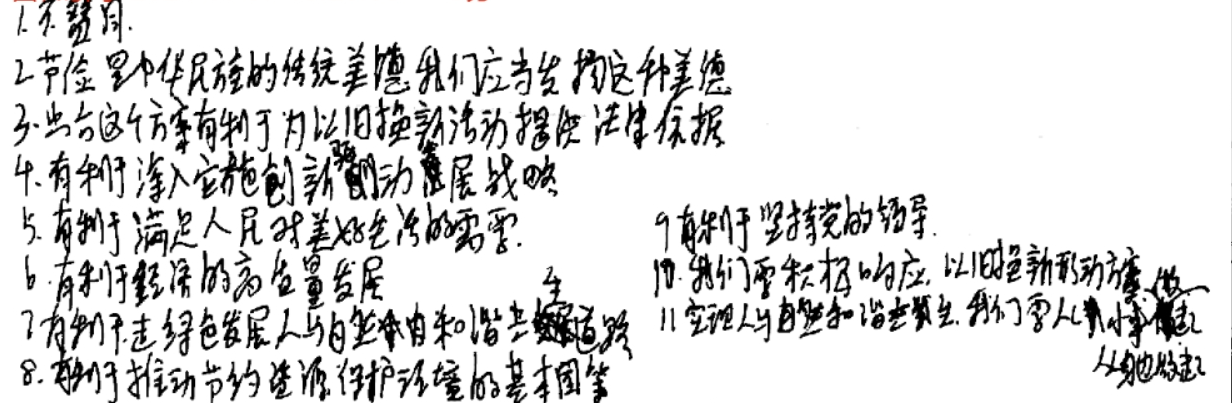 1.不赞同.
2.节俭是中华民族的传统美德我们应当发扬这种美德
3.出台这个方案有利于为以旧换新活动提供法律依据
4.有利于深入实施创新驱动发展战略
5.有利于满足人民对美好生活的需要.
6.有利于经济的高质量发展
7.有利于走绿色发展人与自然和谐共生道路
8.有利于推动节约资源保护环境的基本国策
9有利于坚持党的领导.
10.我们要积极响应,以旧换新形动方案
11.实现人与自然和谐共生.我们要从小事做起
从身边做起